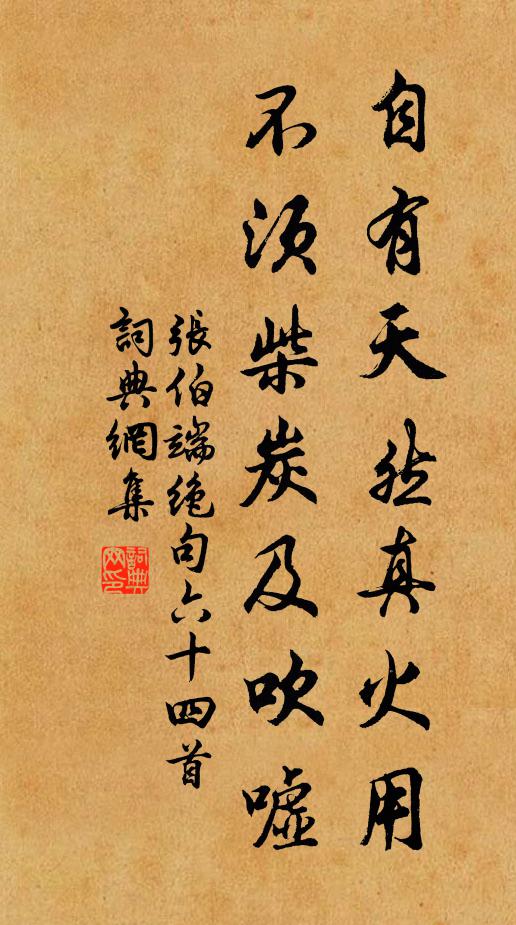 自有天然真火用
不须柴炭及吹嘘
張伯端绝句六十四首
詞典網集
詞典網印